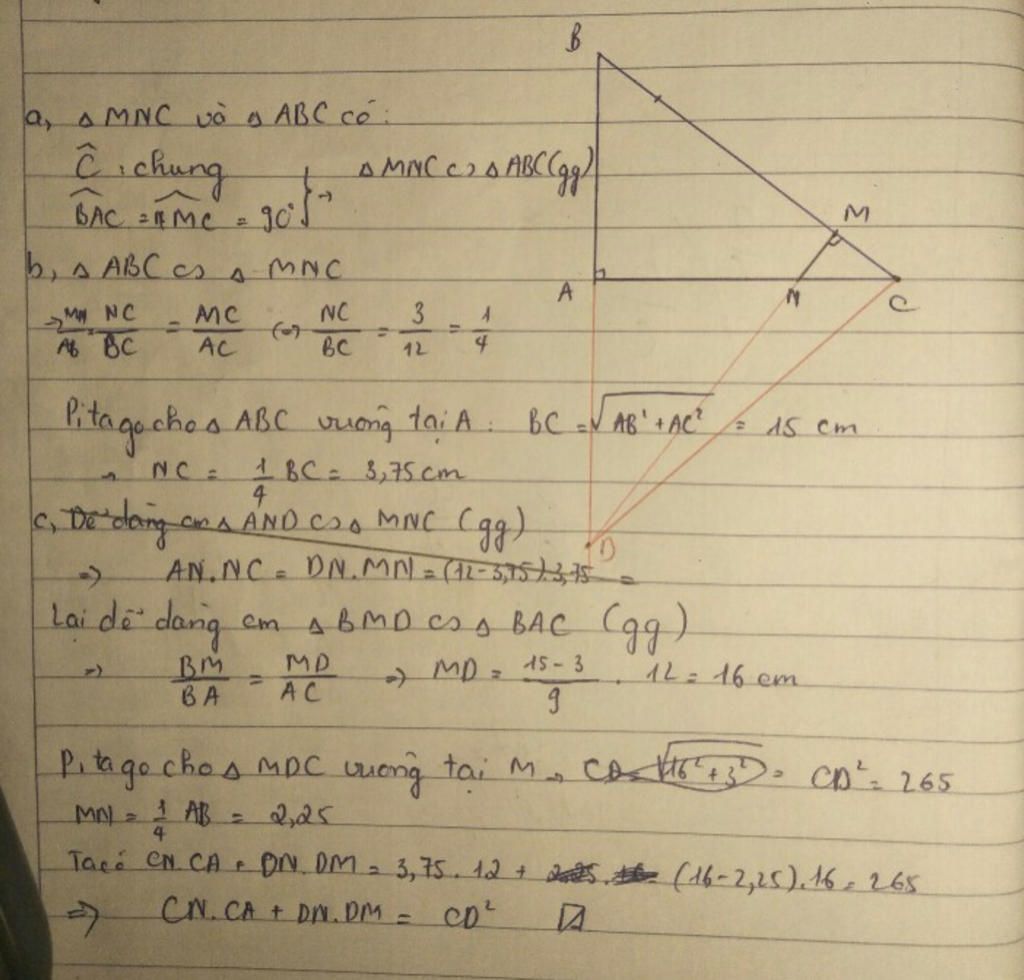 a, △ MNC và △ ABC có:
Ĉ : chung
△ MNC ∽ △ ABC (gg)
BAC = AMC = 90° } →
b, △ ABC ∽ △ MNC
→ MN/AB = NC/BC = MC/AC (=) NC/BC = 3/12 = 1/4
Pitago cho △ ABC vuông tại A : BC = √AB² + AC² = 15 cm
→ NC = 1/4 BC = 3,75 cm
c, Dễ dàng cm △ AND ∽ △ MNC (gg)
=> AN.NC = DN.MN = (12-3,75).3,75 =
Lại dễ dàng cm △ BMD ∽ △ BAC (gg)
=> BM/BA = MD/AC => MD = 15-3/9 . 12 = 16 cm
Pitago cho △ MDC vuông tại M → CD = √16²+3² = CD² = 265
MN = 1/4 AB = 2,25
Ta có CN.CA + DN.DM = 3,75.12 + (16-2,25).16 = 265
=> CN.CA + DN.DM = CD²
B
M
A
N
C
D